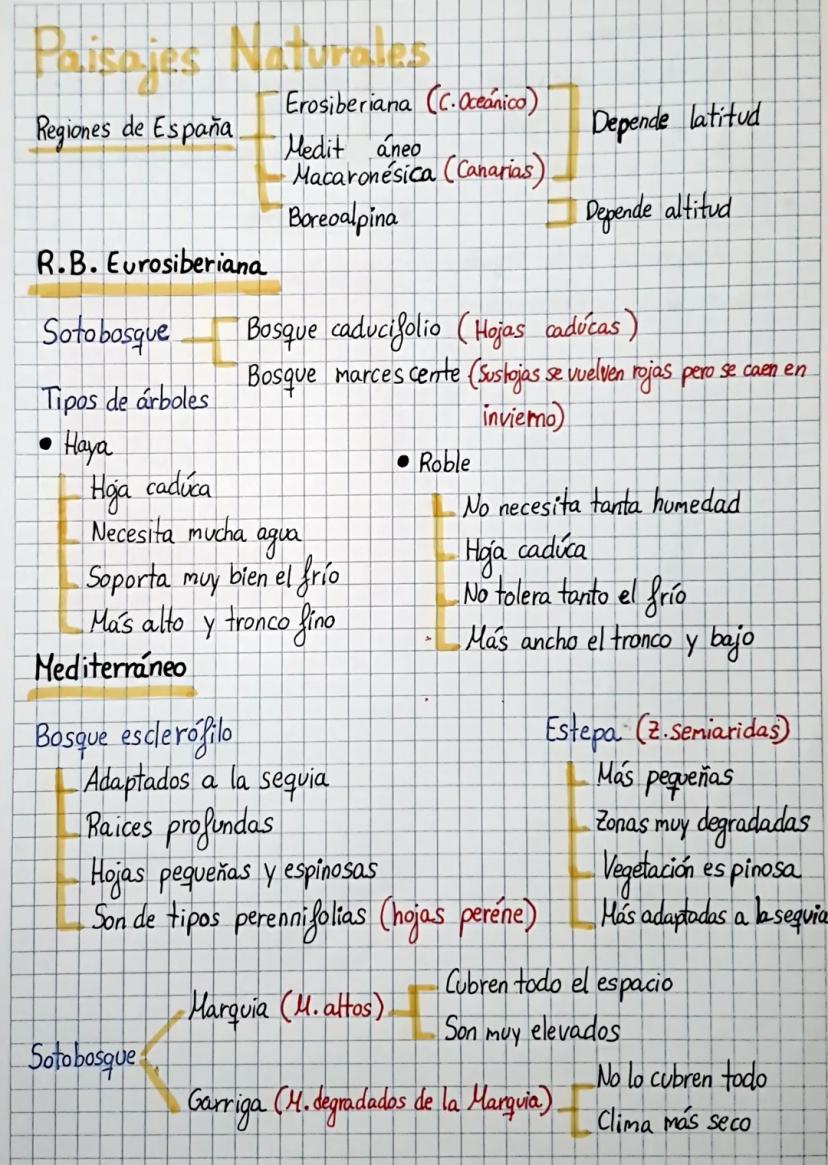 Paisajes Naturales
Regiones de España
Erosiberiana (C.Oceánico)
Medit áneo
Macaronésica (Canarias)
Depende latitud
Boreoalpina
Depende altitud
R.B. Eurosiberiana
Sotobosque
Bosque caducifolio (Hojas cadúcas)
Bosque marcescente (Sus hojas se vuelven rojas pero se caen en
invierno)
Tipos de árboles
• Haya
Hoja cadúca
Necesita mucha agua
Soporta muy bien el frío
Más alto y tronco fino
• Roble
No necesita tanta humedad
Hoja cadúca
No tolera tanto el frío
Más ancho el tronco y bajo
Mediterráneo
Bosque esclerófilo
Adaptados a la sequia
Raices profundas
Hojas pequeñas y espinosas
Son de tipos perennifolias (hojas peréne)
Estepa (Z.semiaridas)
Más pequeñas
Zonas muy degradadas
Vegetación espinosa
Más adaptadas a la sequia
Sotobosque
Marquia (M.altos)
Cubren todo el espacio
Son muy elevados
Garriga (M.degradados de la Marquia)
No lo cubren todo
Clima más seco